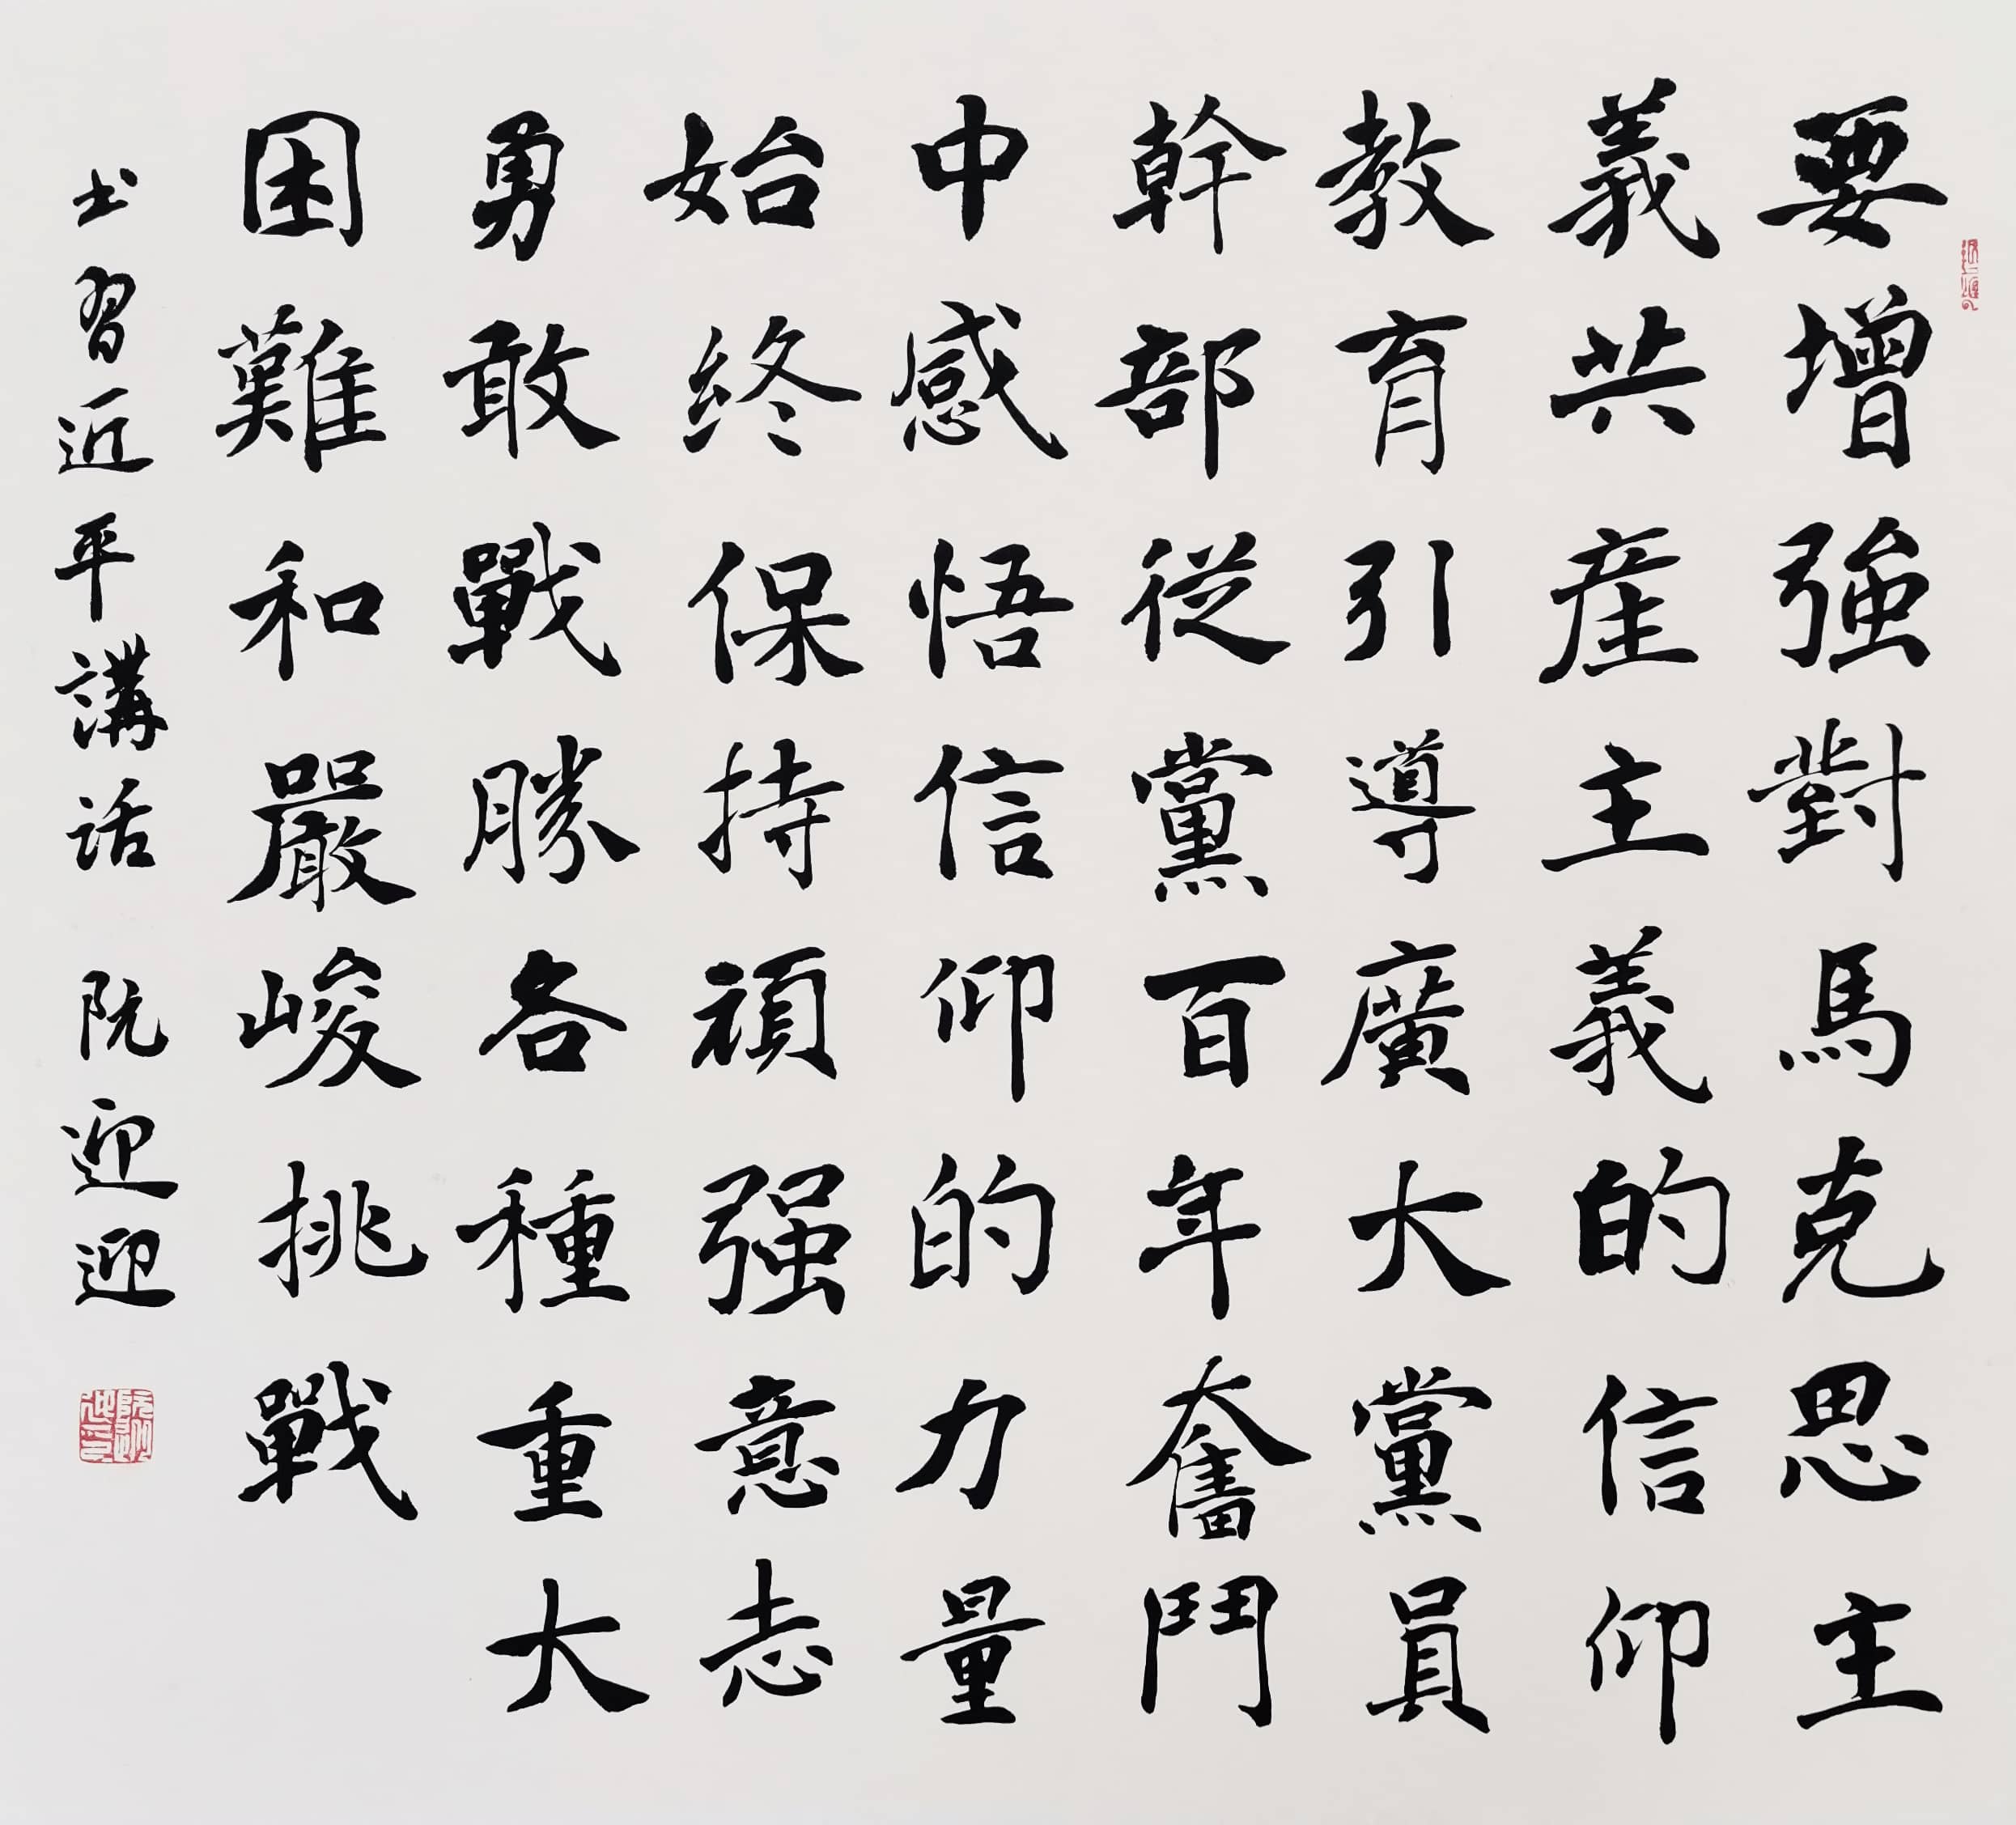 要增強對馬克思主
義共產主義的信仰
教育引導廣大黨員
幹部從黨百年奮鬥
中感悟信仰的力量
始終保持頑强意志
勇敢戰勝各種重大
困難和嚴峻挑戰
士習近平講話 阮迎迎